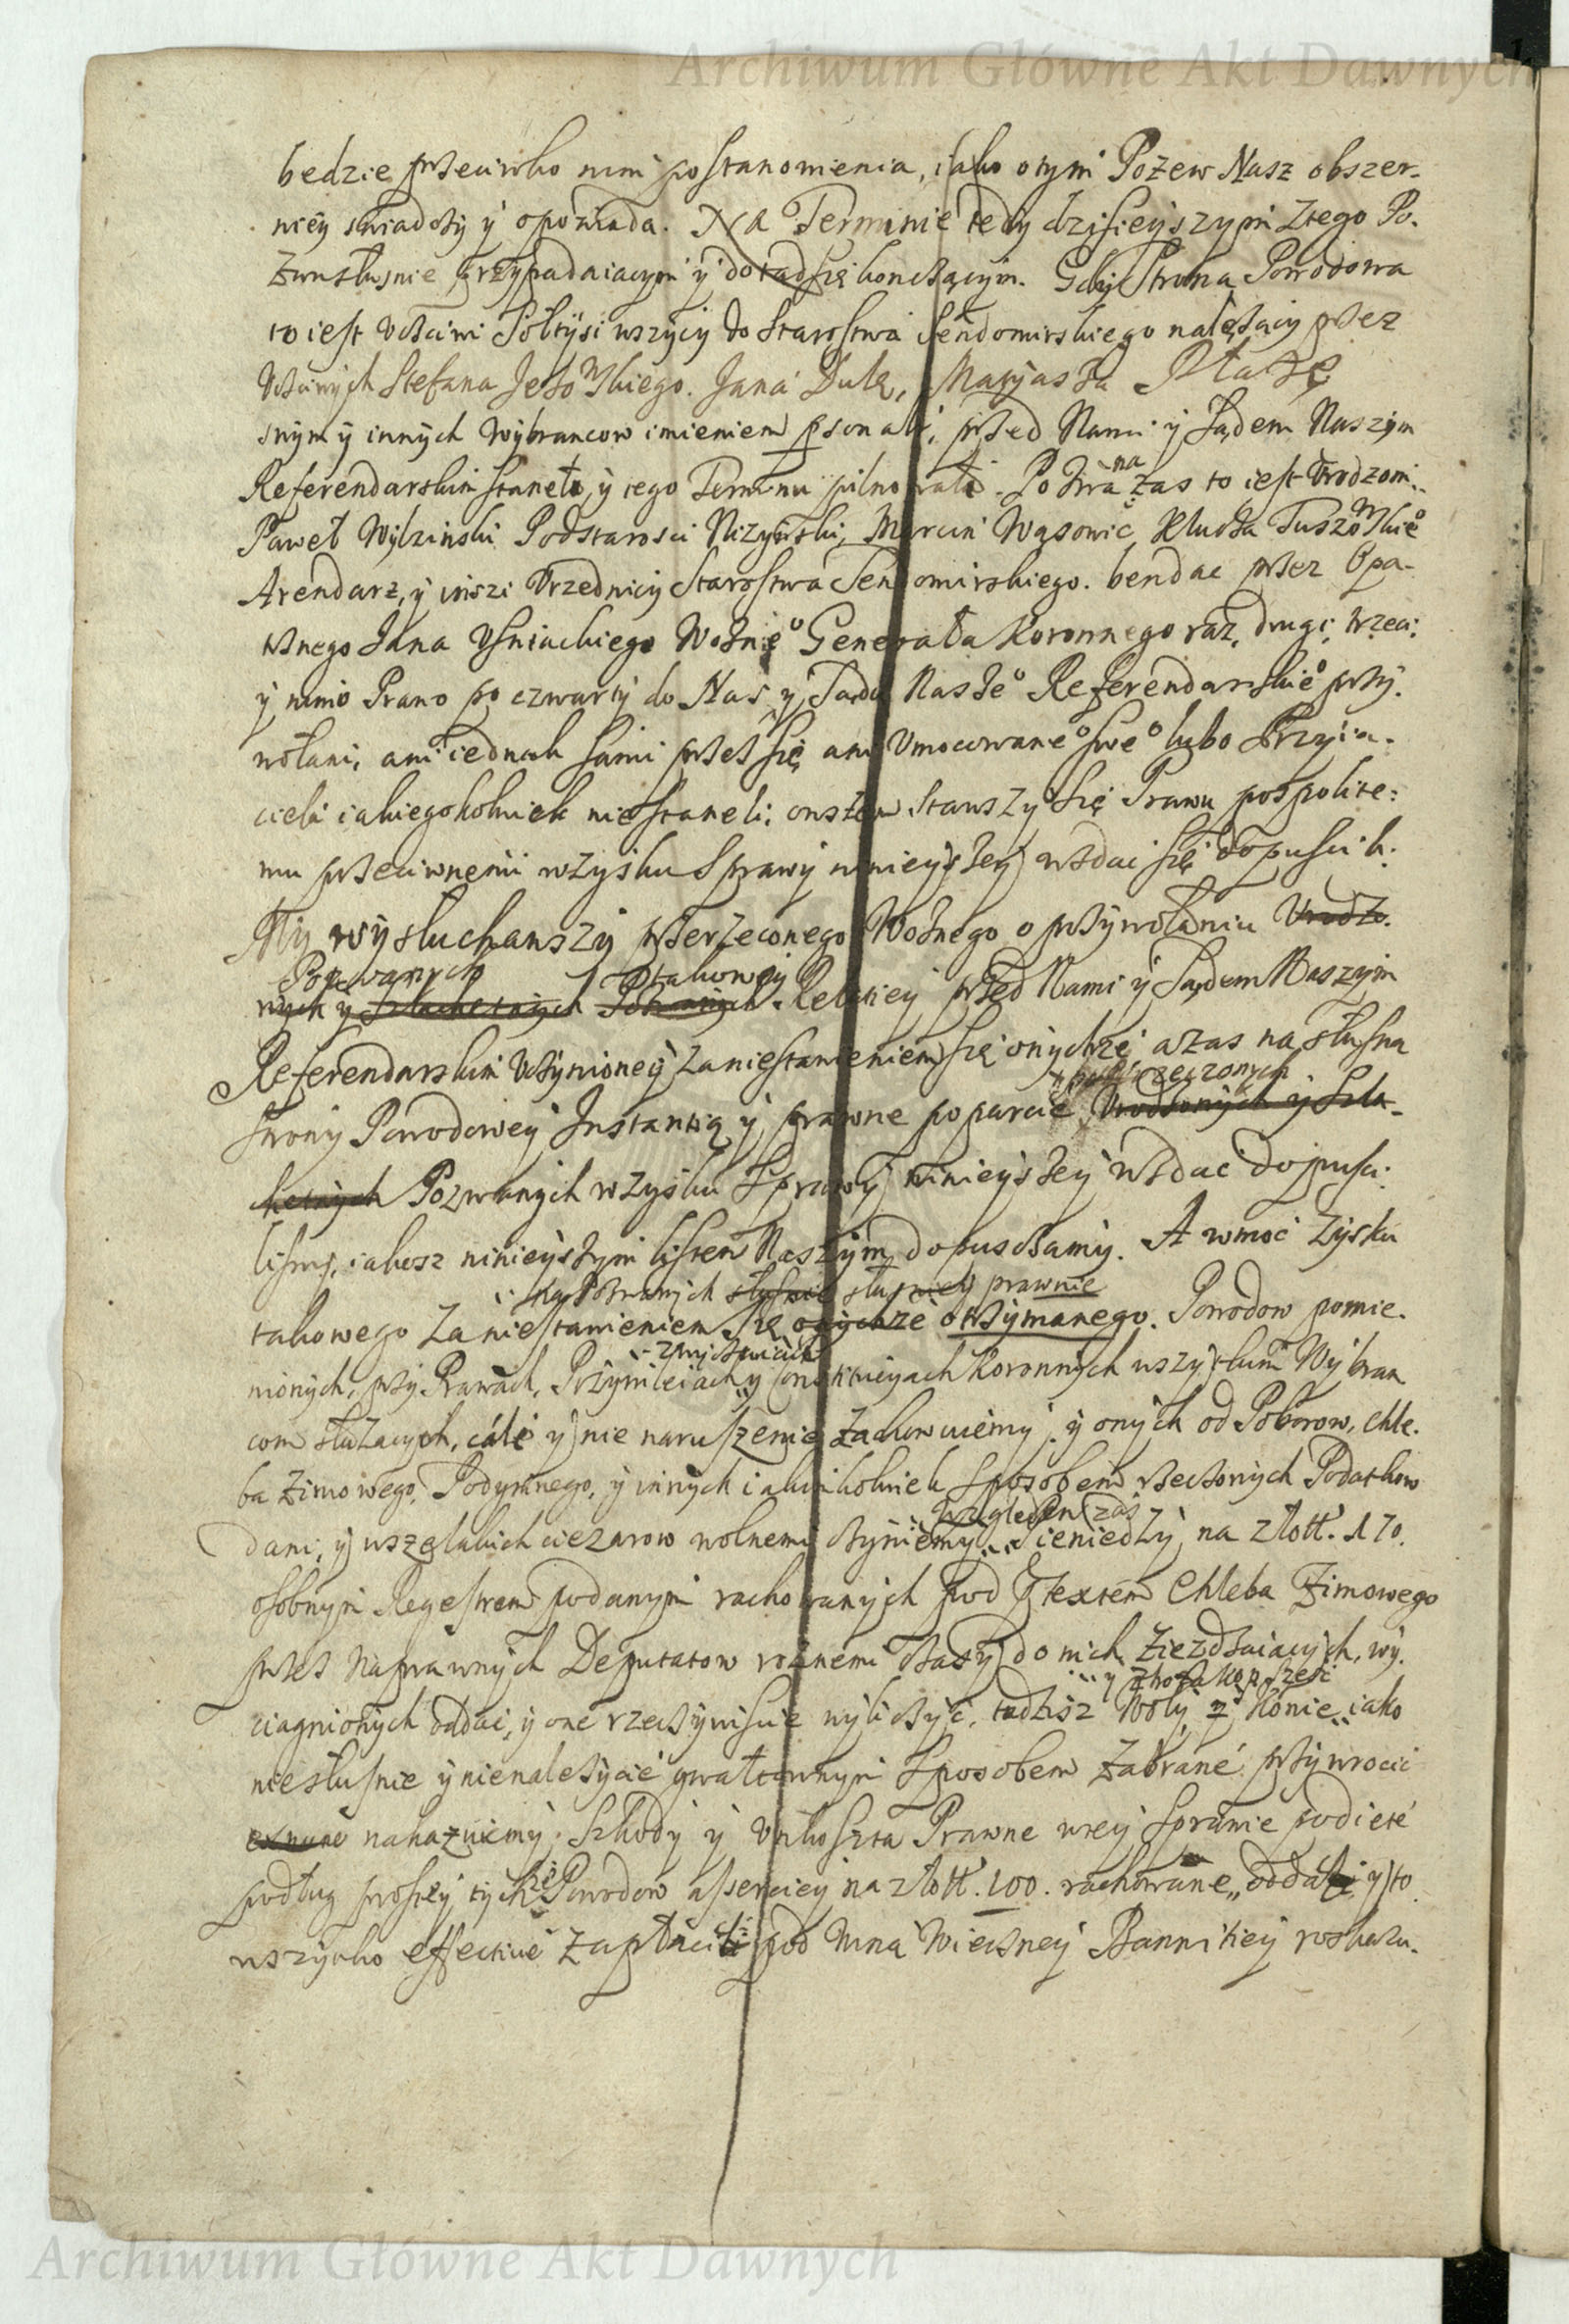 Archiwum Główne Akt Dawnych
będzie przeciwko nim postanowienia, iako o tym Pozew Nasz obszer-
niey swiadczy y opowiada. Na Terminie tedy dzisieyszym z tego Po-
zwu słusznie przypadaiącym y dotąd się konczącym. Gdy Strona Powodowa
to iest Ucciwi Sołtysi wszycy do Starostwa Sendomirskiego należący przez
Ucciwych Stefana Jezowskiego. Jana Dulę,
swym y innych Wybrancow imieniem psonalr, przed Nami y Sądem Naszym
Referendarskim staneła, y tego Terminu pilnowała. Pozwana zas to iest Urodzoni
Paweł Wylzinski Podstarosci Nizynski, Marcin Wąsowic, Klucza Tuszowskie°
Arendarz, y inszi Urzednicy Starostwa Sendomirskiego. bendac przez Opa-
trznego Jana Usniackiego Wozne° Generała Koronnego raz, drugi, trzeci,
y mimo Prawo po czwarty do Nas y Sądu Nasze° Referendarskie° przy-
wołani, ani iednak sami przez się ani Umocowane° swe° lubo Przyia-
ciela iakiegokolwiek nie staneli; owszem stawszy się Prawu pospolite-
mu przeciwnemi w zysku Sprawy ninieyszey wzdac się dopuscili.
My wysłuchawszy przerzeczonego Woznego o przywołaniu Urodzo-
Pozwanych takowey
nych y Szlachetnych Pozwanych Relatiey przed Nami y Sądem Naszym
Referendarskim Uczynioney, za niestawieniem się onychze, a zas na słuszną
rzeczonych
Strony Powodowey Instantią y prawne poparcie Urodzonych y Szla-
chetnych Pozwanych w zysku Sprawy ninieyszey wzdac dopusci-
lismy, iakosz ninieyszym listem Naszym dopuszczamy. A w moc zysku
Pozwanych słusznie słuszney prawnie
takowego za niestawieniem się onychze otrzymanego. Powodow pomie-
zwyczaiach
nionych, przy Prawach, Przywileiach, y Constituciach Koronnych wszystkim Wybran
com słuzacych, cále y nie naruszenie zachowuiemy; y onych od Poborow, Chle-
ba Zimowego, Podymnego, y innych iakimkolwiek sposobem rzeczonych Podatkow
względem zas
dani, y wszelakich ciezarow wolnemi czyniemy. Pieniedzy na złott. 170.
osobnym Regestrem podanym rachowanych pod Ptextem Chleba Zimowego
przez Naprawnych Deputatow roznemi czasy do nich ziezdzaiacych, wy-
y zboza kop szesc
ciagnionych oddac, y one rzeczywiscie wyliczyc, tudzisz Woły, y Konie, iako
niesłusnie y nienalezycie gwałtownym sposobem zabrane przywrocic
nakazuiemy; Szkody y Unkoszta Prawne w tey Sprawie podiete
podług prostey tychze Powodow asserciey na złott. 100. rachowane, oddali y to
wszytko effective zapłacili pod Wina Wieczney Banniciey roskazu-
Archiwum Główne Akt Dawnych